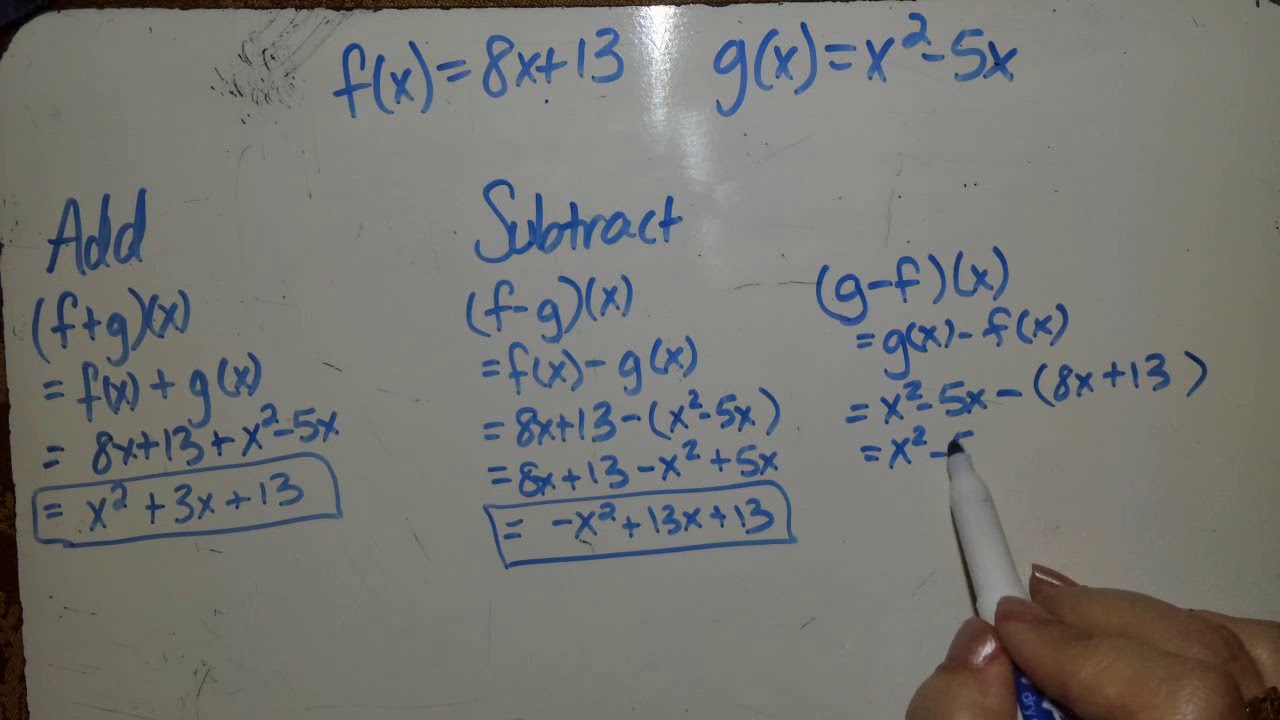 f(x) = 8x+13 g(x) = x²-5x
Add
(f+g)(x)
= f(x) + g(x)
= 8x+13+x²-5x
= x²+3x+13
Subtract
(f-g)(x)
= f(x) - g(x)
= 8x+13-(x²-5x)
= 8x+13-x²+5x
= -x²+13x+13
(g-f)(x)
= g(x) - f(x)
= x²-5x-(8x+13)
= x²-5